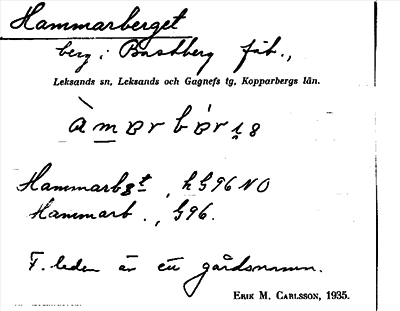 Hammarberget
berg i Bastberg fäb.,
Leksands sn, Leksands och Gagnefs tg, Kopparbergs län.
Hammarbgt, h G96 NO
Hammarb., G96.
F. leden är ett gårdsnamn.
ERIK M. CARLSSON, 1935.